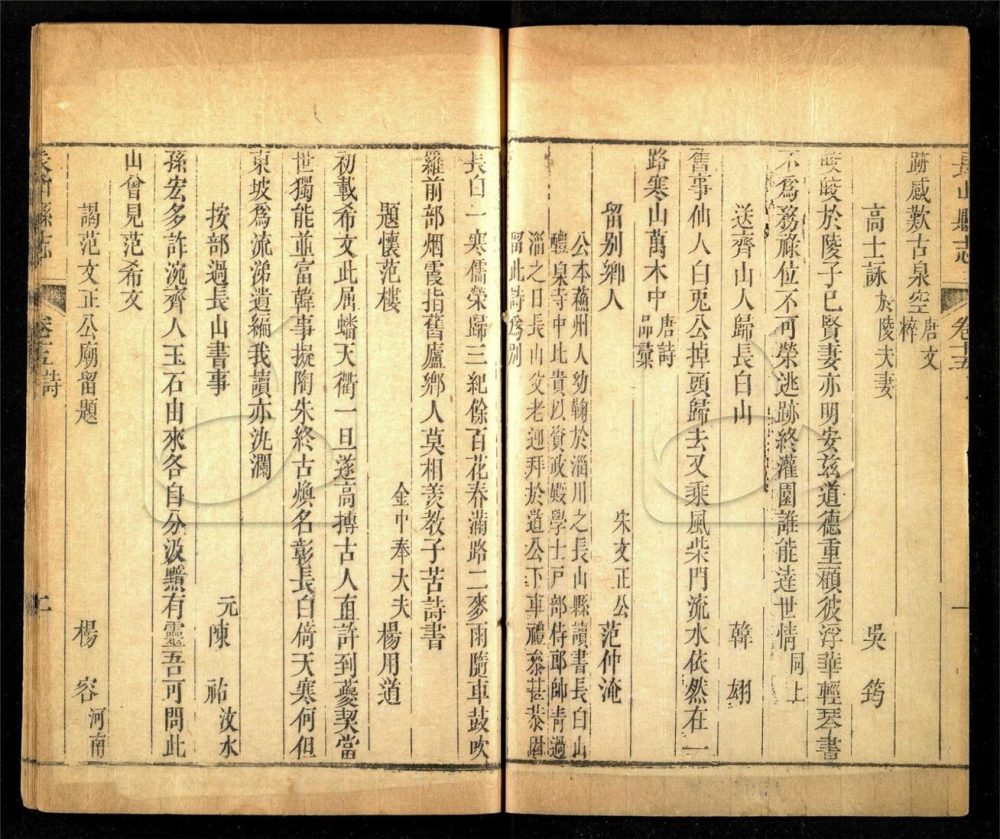 長山縣志 卷十五 一
跡感歎古泉空 唐文粹
高士詠 於陵夫妻 吳筠
皎皎於陵子已賢妻亦明安兹道德重顧彼浮華輕琴書
不爲務祿位不可榮逃跡終灌園誰能達世情 同上
送齊山人歸長白山 韓翃
舊事仙人白兎公掉頭歸去又乘風柴門流水依然在一
路寒山萬木中 唐詩品彙
留别鄉人 宋文正公 范仲淹
公本蘓州人幼鞠於淄川之長山縣讀書長白山
醴泉寺中此貴以資政殿學士戸部侍郎帥青過
淄之日長山父老迎拜於道公下車禮叅甚恭
留此詩爲别
長白一寒儒榮歸三紀餘百花春滿路二麥雨隨車鼓吹
羅前部烟霞指舊廬鄉人莫相羨教子苦詩書
題懷范樓 金中奉大夫 楊用道
初載希文此屈蟠天衢一旦遂高摶古人直許到夔契當
世獨能並富韓事擬陶朱終古煥名彰長白倚天寒何但
東坡爲流涕遺編我讀亦汍瀾
按部過長山書事 元陳祐 汶水
孫宏多詐涴齊人玉石由來各自分汲黯有靈吾可問此
山曾見范希文
謁范文正公廟留題 楊容 河南
長山縣志 卷十五 詩 二